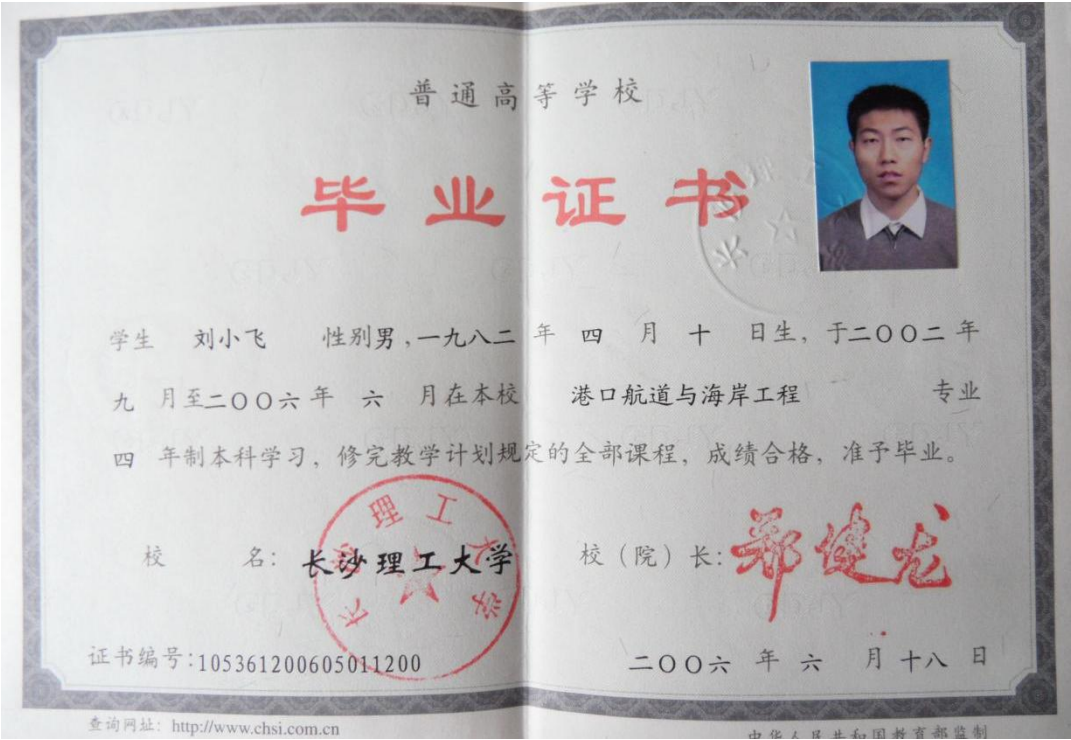 普通高等学校
毕业证书
学生 刘小飞 性别男，一九八二年 四 月 十 日生，于二〇〇二年
九 月至二〇〇六年 六 月在本校 港口航道与海岸工程 专业
四 年制本科学习，修完教学计划规定的全部课程，成绩合格，准予毕业。
校 名：长沙理工大学 校（院）长：郑健龙
长沙理工大学
证书编号：105361200605011200 二〇〇六年 六 月 十八 日
查询网址：http://www.chsi.com.cn 中华人民共和国教育部监制